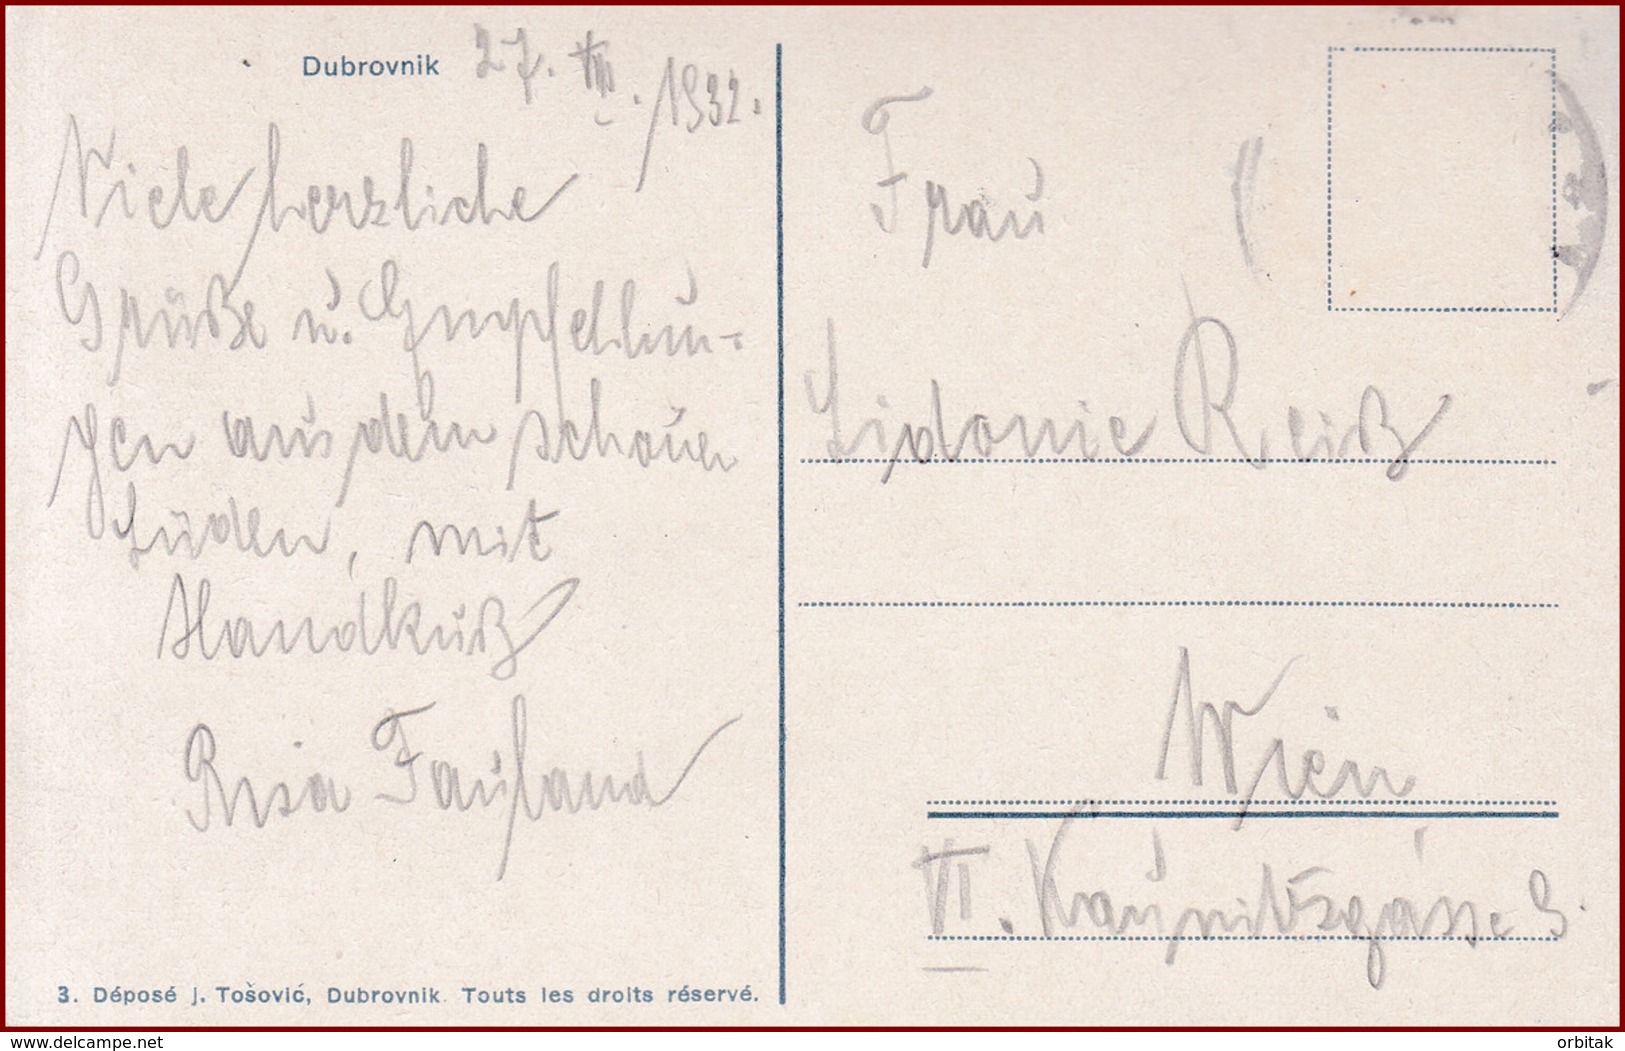 Dubrovnik 27. VII. 1932.
Viele herzliche
Grüße u. Empfehlun-
gen aus dem schönen
Süden, mit
Handkuß
Risa Fauland
3. Déposé J. Tošović, Dubrovnik. Touts les droits réservé.
Frau
Sidonie Reiß
Wien
VI. Kaunitzgasse 9.
www.delcampe.net
orbitak